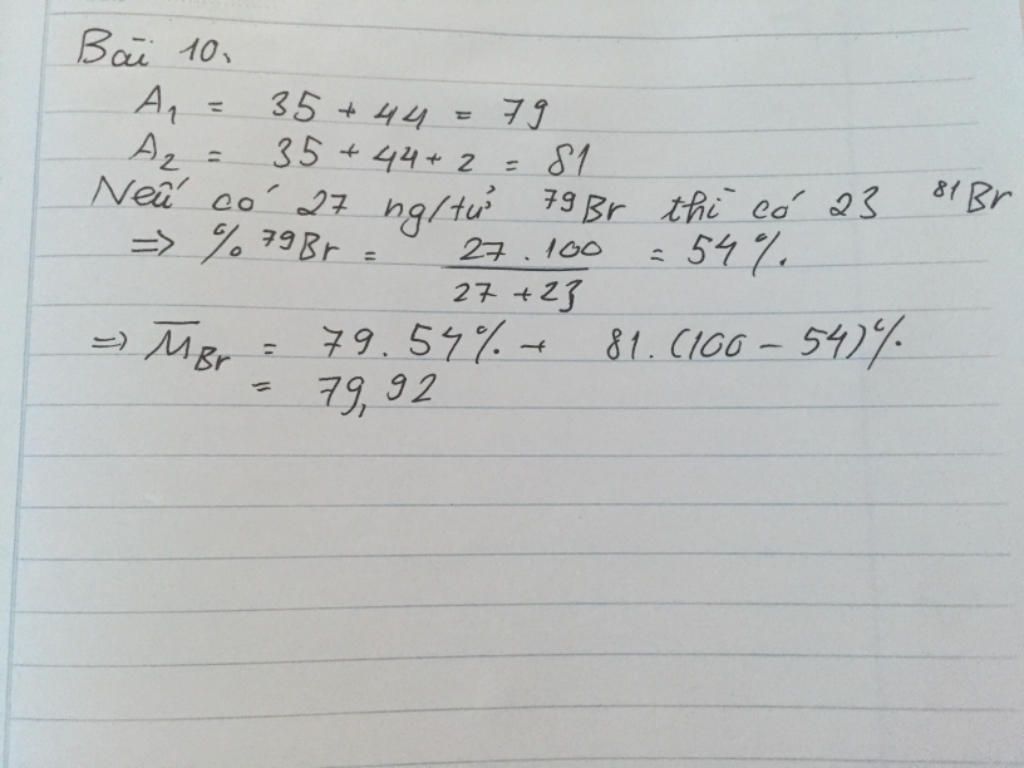 Bài 10.
A₁ = 35 + 44 = 79
A₂ = 35 + 44 + 2 = 81
Nếu có 27 ng/tử ⁷⁹Br thì có 23 ⁸¹Br
=> % ⁷⁹Br = 27 . 100 / 27 + 23 = 54%.
=> M̅Br = 79 . 54% + 81. (100 - 54)%.
= 79,92